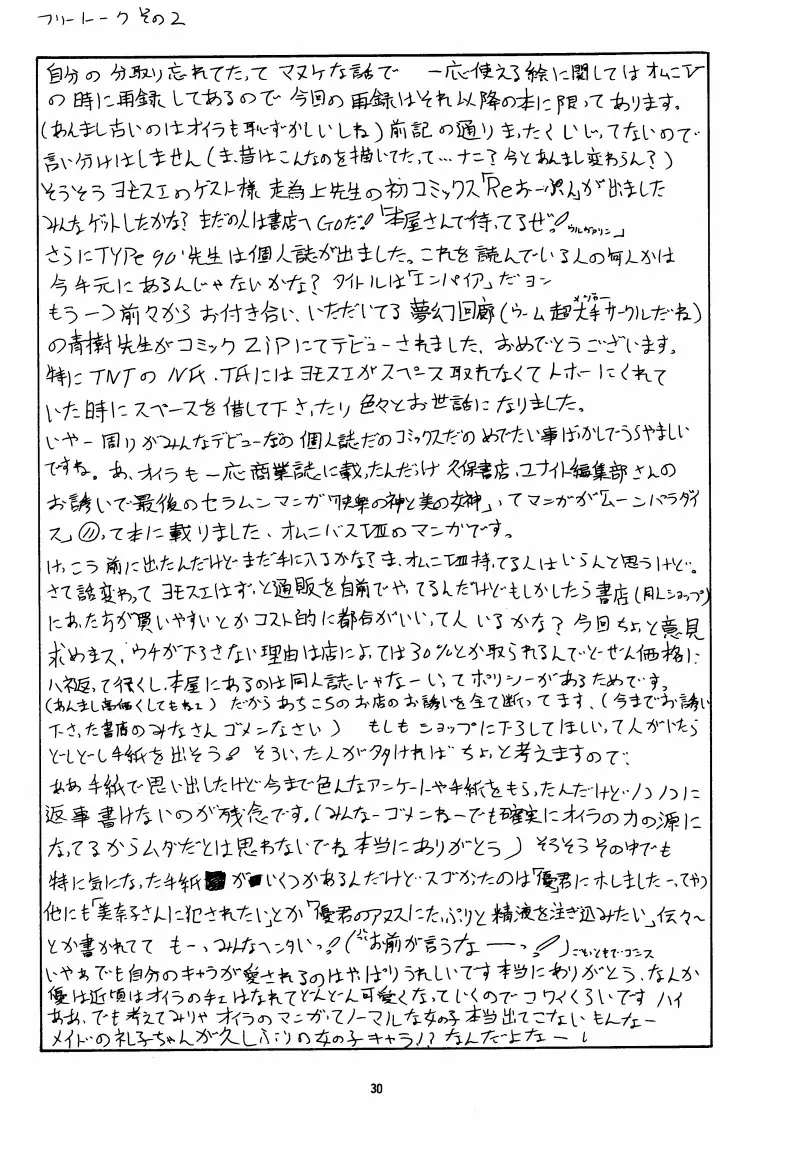 フリートーク その2
自分の分取り忘れてたって マヌケな話で 一応使える絵に関してはオムニⅣ
の時に再録してあるので今回の再録はそれ以降の本に限ってあります。
(あんまし古いのはオイラも恥ずかしいしね)前記の通りまったくいじってないので
言い分けはしません(ま、昔はこんなのを描いてたって…ナニ?今とあんまし変わらん?)
そうそうヨモスエのゲスト様 走為上先生の初コミックス「Reおーぷん」が出ました
みんなゲットしたかな?まだの人は書店へGoだ!「本屋さんで待ってるぜ!ウルヴァリン」
さらにTYPe90'先生は個人誌が出ました。これを読んでいる人の何人かは
今手元にあるんじゃないかな?タイトルは「エンパイア」だヨン
もう一つ前々からお付き合い、いただいてる夢幻回廊(ウーム超大手サークルだね)
の青樹先生がコミックZiPにてデビューされました、おめでとうございます。
特にTNTのNF.TFにはヨモスエがスペース取れなくてトホーにくれて
いた時にスペースを借して下さったり色々とお世話になりました。
いやー周りがみんなデビューなの個人誌だのコミックスだのめでたい事ばかしでうらやましい
ですね。あ、オイラも一応商業誌に載ったんだっけ久保書店、ユナイト編集部さんの
お誘いで最後のセラムンマンガ「快楽の神と美の女神」ってマンガが「ムーンパラダイ
ス」⑪って本に載りました、オムニバスⅧのマンガです。
けっこう前に出たんだけどまだ手に入るかな?ま、オムニⅧ持ってる人はいらんと思うけど。
さて話変わって ヨモスエはずっと通販を自前でやってるんだけどもしかしたら書店(同人ショップ)
にあった方が買いやすいとかコスト的に都合がいいって人いるかな?今回ちょっと意見
求めまス、ウチが下ろさない理由は店によっては30%とか取られるんでどーせん価格に
ハネ返って行くし、本屋にあるのは同人誌じゃなーいってポリシーがあるためです。
(あんまし高価くしてもねェ) だからあちこちのお店のお誘いを全て断ってます、(今までお誘い
下さった書店のみなさんゴメンなさい) もしもショップに下ろしてほしいって人がいたら
どしどし手紙を出そう!そういった人が多ければちょっと考えますので、
ああ手紙で思い出したけど今まで色んなアンケートや手紙をもらったんだけど
返事書けないのが残念です。(みんなーゴメンねーでも確実にオイラの力の源に
なってるからムダだとは思わないでね本当にありがとう)そうそうその中でも
特に気になった手紙がいくつかあるんだけどスゴかったのは「優君にホレました―」ってやつ
他にも「美奈子さんに犯されたい」とか「優君のアヌスにたっぷりと精液を注ぎ込みたい」伝々〜
とか書かれてて もーっみんなヘンタいっ!(お前が言うなーっ!)
いやぁでも自分のキャラが愛されるのはやっぱりうれしいです本当にありがとう、なんか
優は近頃はオイラのチェはなれてどんどん可愛くなっていくのでコワイくらいです ハイ
ああ、でも考えてみりゃオイラのマンガってノーマルな女の子本当出てこないもんなー
メイドの礼子ちゃんが久しぶりの女の子キャラ!?なんだよなー
30